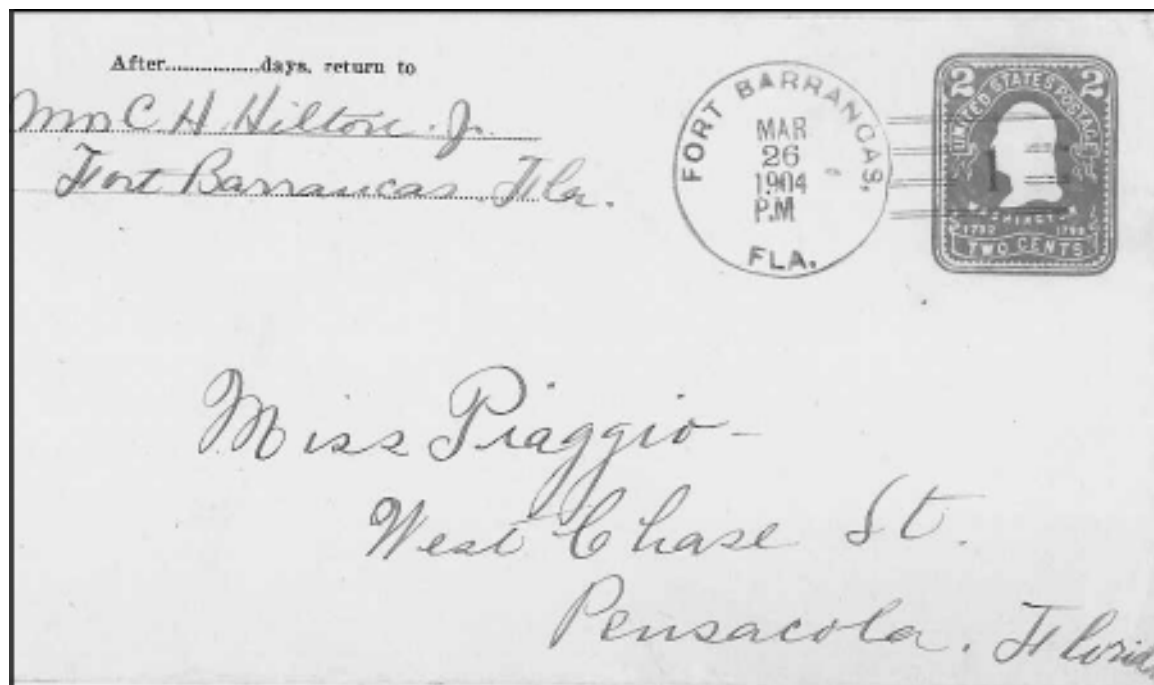 After................days, return to
Mrs C. H. Hilton. Jr.
Fort Barrancas. Fla.
FORT BARRANCAS,
MAR
26
1904
P.M
FLA.
2 2
UNITED STATES POSTAGE
1
WASHINGTON
1732 1799
TWO CENTS
Miss Piaggio-
West Chase St.
Pensacola. Florida